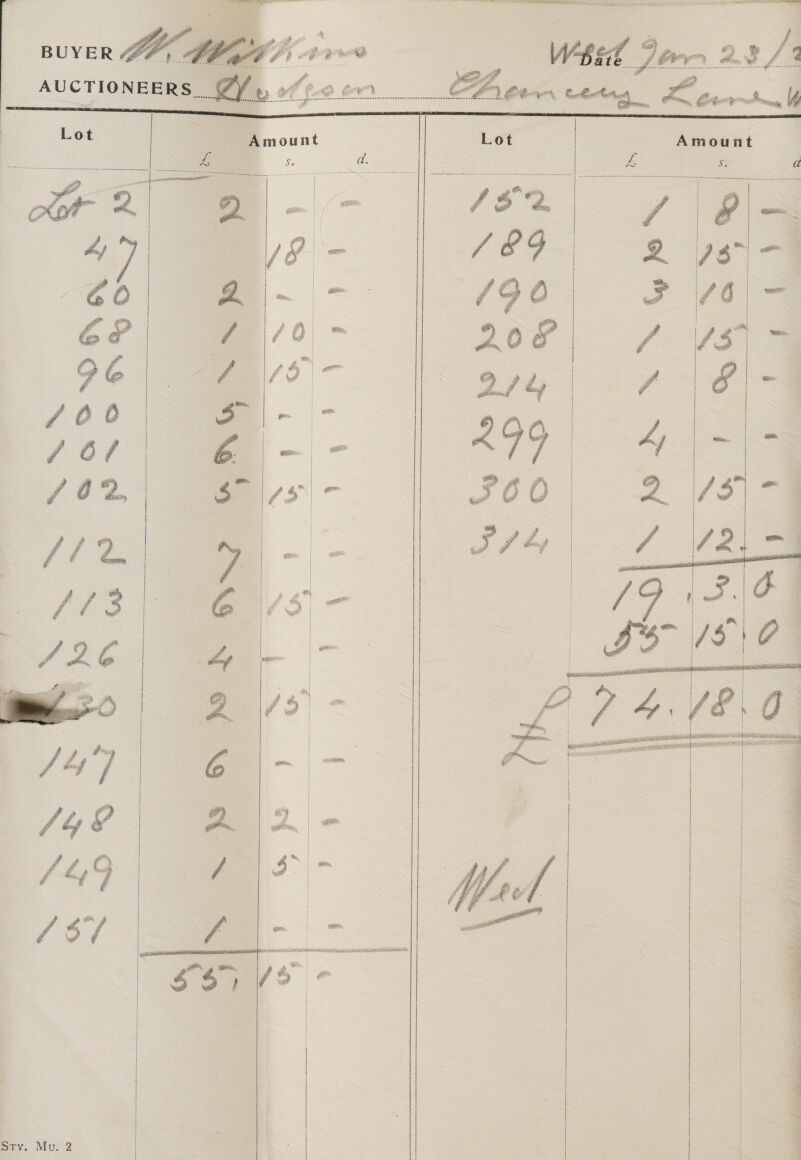 BUYER W. Wilkins Wed Date Jan 23/2
AUCTIONEERS Hodgson Chancery Lane W
Lot Amount
£ s. d.
Lot 2 2 - -
47 18 -
60 2 - -
68 1 10 -
96 1 15 -
100 5 - -
101 6 - -
102 5 15 -
112 7 - -
113 6 15 -
126 4 - -
130 2 15 -
147 6 - -
148 2 2 -
149 1 5 -
151 1 - -
55, 15 -
Lot Amount
£ s. d
152 1 8 -
189 2 15 -
190 3 10 -
208 1 15 -
214 1 8 -
299 4 - -
300 2 15 -
314 1 12. -
19 . 3. 0
55 15. 0
£ 74. 18. 0
Wed
STY. MU. 2